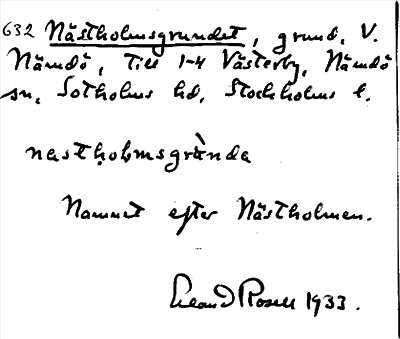 632 Nästholmsgrundet, grund, V.
Nämdö, till 1-4 Västerby, Nämdö
sn, Sotholms hd, Stockholms l.
nastholmsgrùnda
Namnet efter Nästholmen.
Rosell 1933.